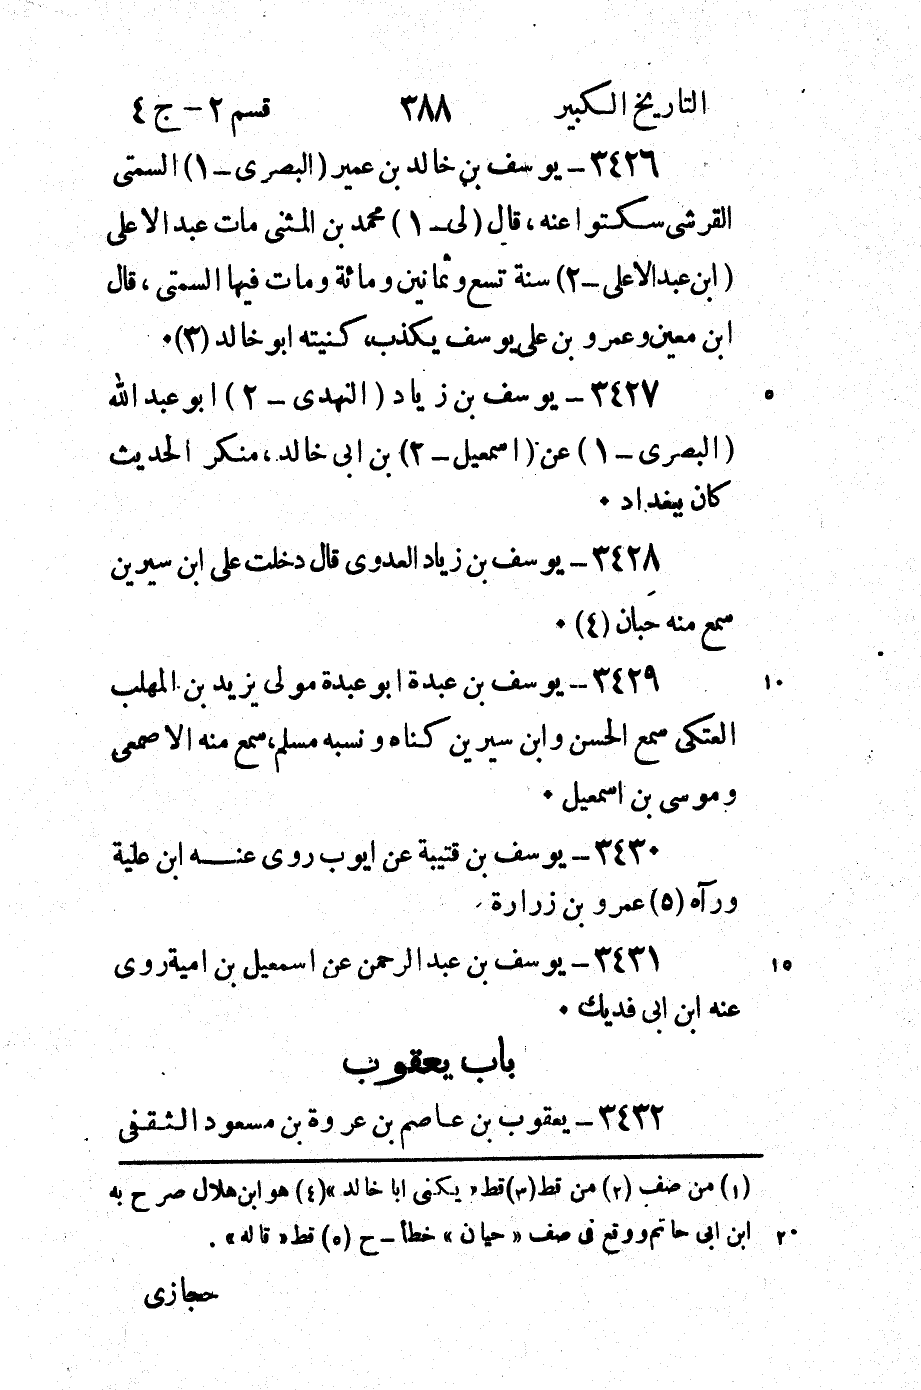 التاريخ الكبير ٣٨٨ قسم ٢ – ج ٤
٣٤٢٦ – يوسف بن خالد بن عمير (البصرى – ١) السمتى
القرشى سكتوا عنه، قال (لى – ١) محمد بن المثنى مات عبد الاعلى
(ابن عبد الاعلى – ٢) سنة تسع وثمانين ومائة ومات فيها السمتى، قال
ابن معين وعمرو بن على يوسف يكذب، كنيته ابو خالد (٣)٠
٣٤٢٧ – يوسف بن زياد (النهدى – ٢) ابو عبد الله ٥
(البصرى – ١) عن (اسمعيل – ٢) بن ابى خالد، منكر الحديث
كان ببغداد ٠
٣٤٢٨ – يوسف بن زياد العدوى قال دخلت على ابن سيرين
سمع منه حبان (٤) ٠
٣٤٢٩ – يوسف بن عبدة ابو عبدة مولى يزيد بن المهلب ١٠
العتكى سمع الحسن وابن سيرين كناه ونسبه مسلم، سمع منه الاصمعى
وموسى بن اسمعيل ٠
٣٤٣٠ – يوسف بن قتيبة عن ايوب روى عنه ابن علية
ورآه (٥) عمرو بن زرارة ٠
٣٤٣١ – يوسف بن عبد الرحمن عن اسمعيل بن امية روى ١٥
عنه ابن ابى فديك ٠
باب يعقوب
٣٤٣٢ – يعقوب بن عاصم بن عروة بن مسعود الثقفى
(١) من صف (٢) من قط (٣) قط «يكنى ابا خالد» (٤) هو ابن هلال صرح به
ابن ابى حاتم ووقع فى صف «حيان» خطأ – ح (٥) قط «قاله». ٢٠
حجازى